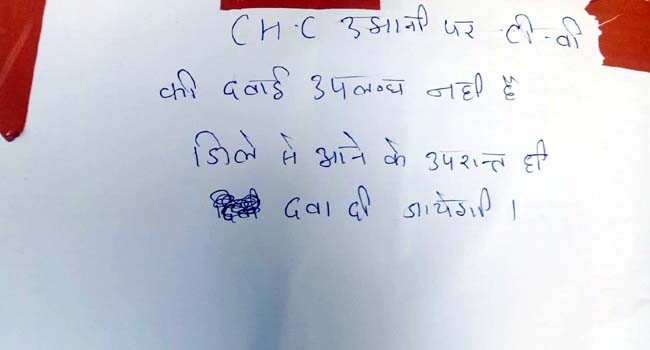 CH.C उझानी पर टी.वी
की दवाई उपलब्ध नही है
जिले से आने के उपरान्त ही
दवा दी जायेगी।